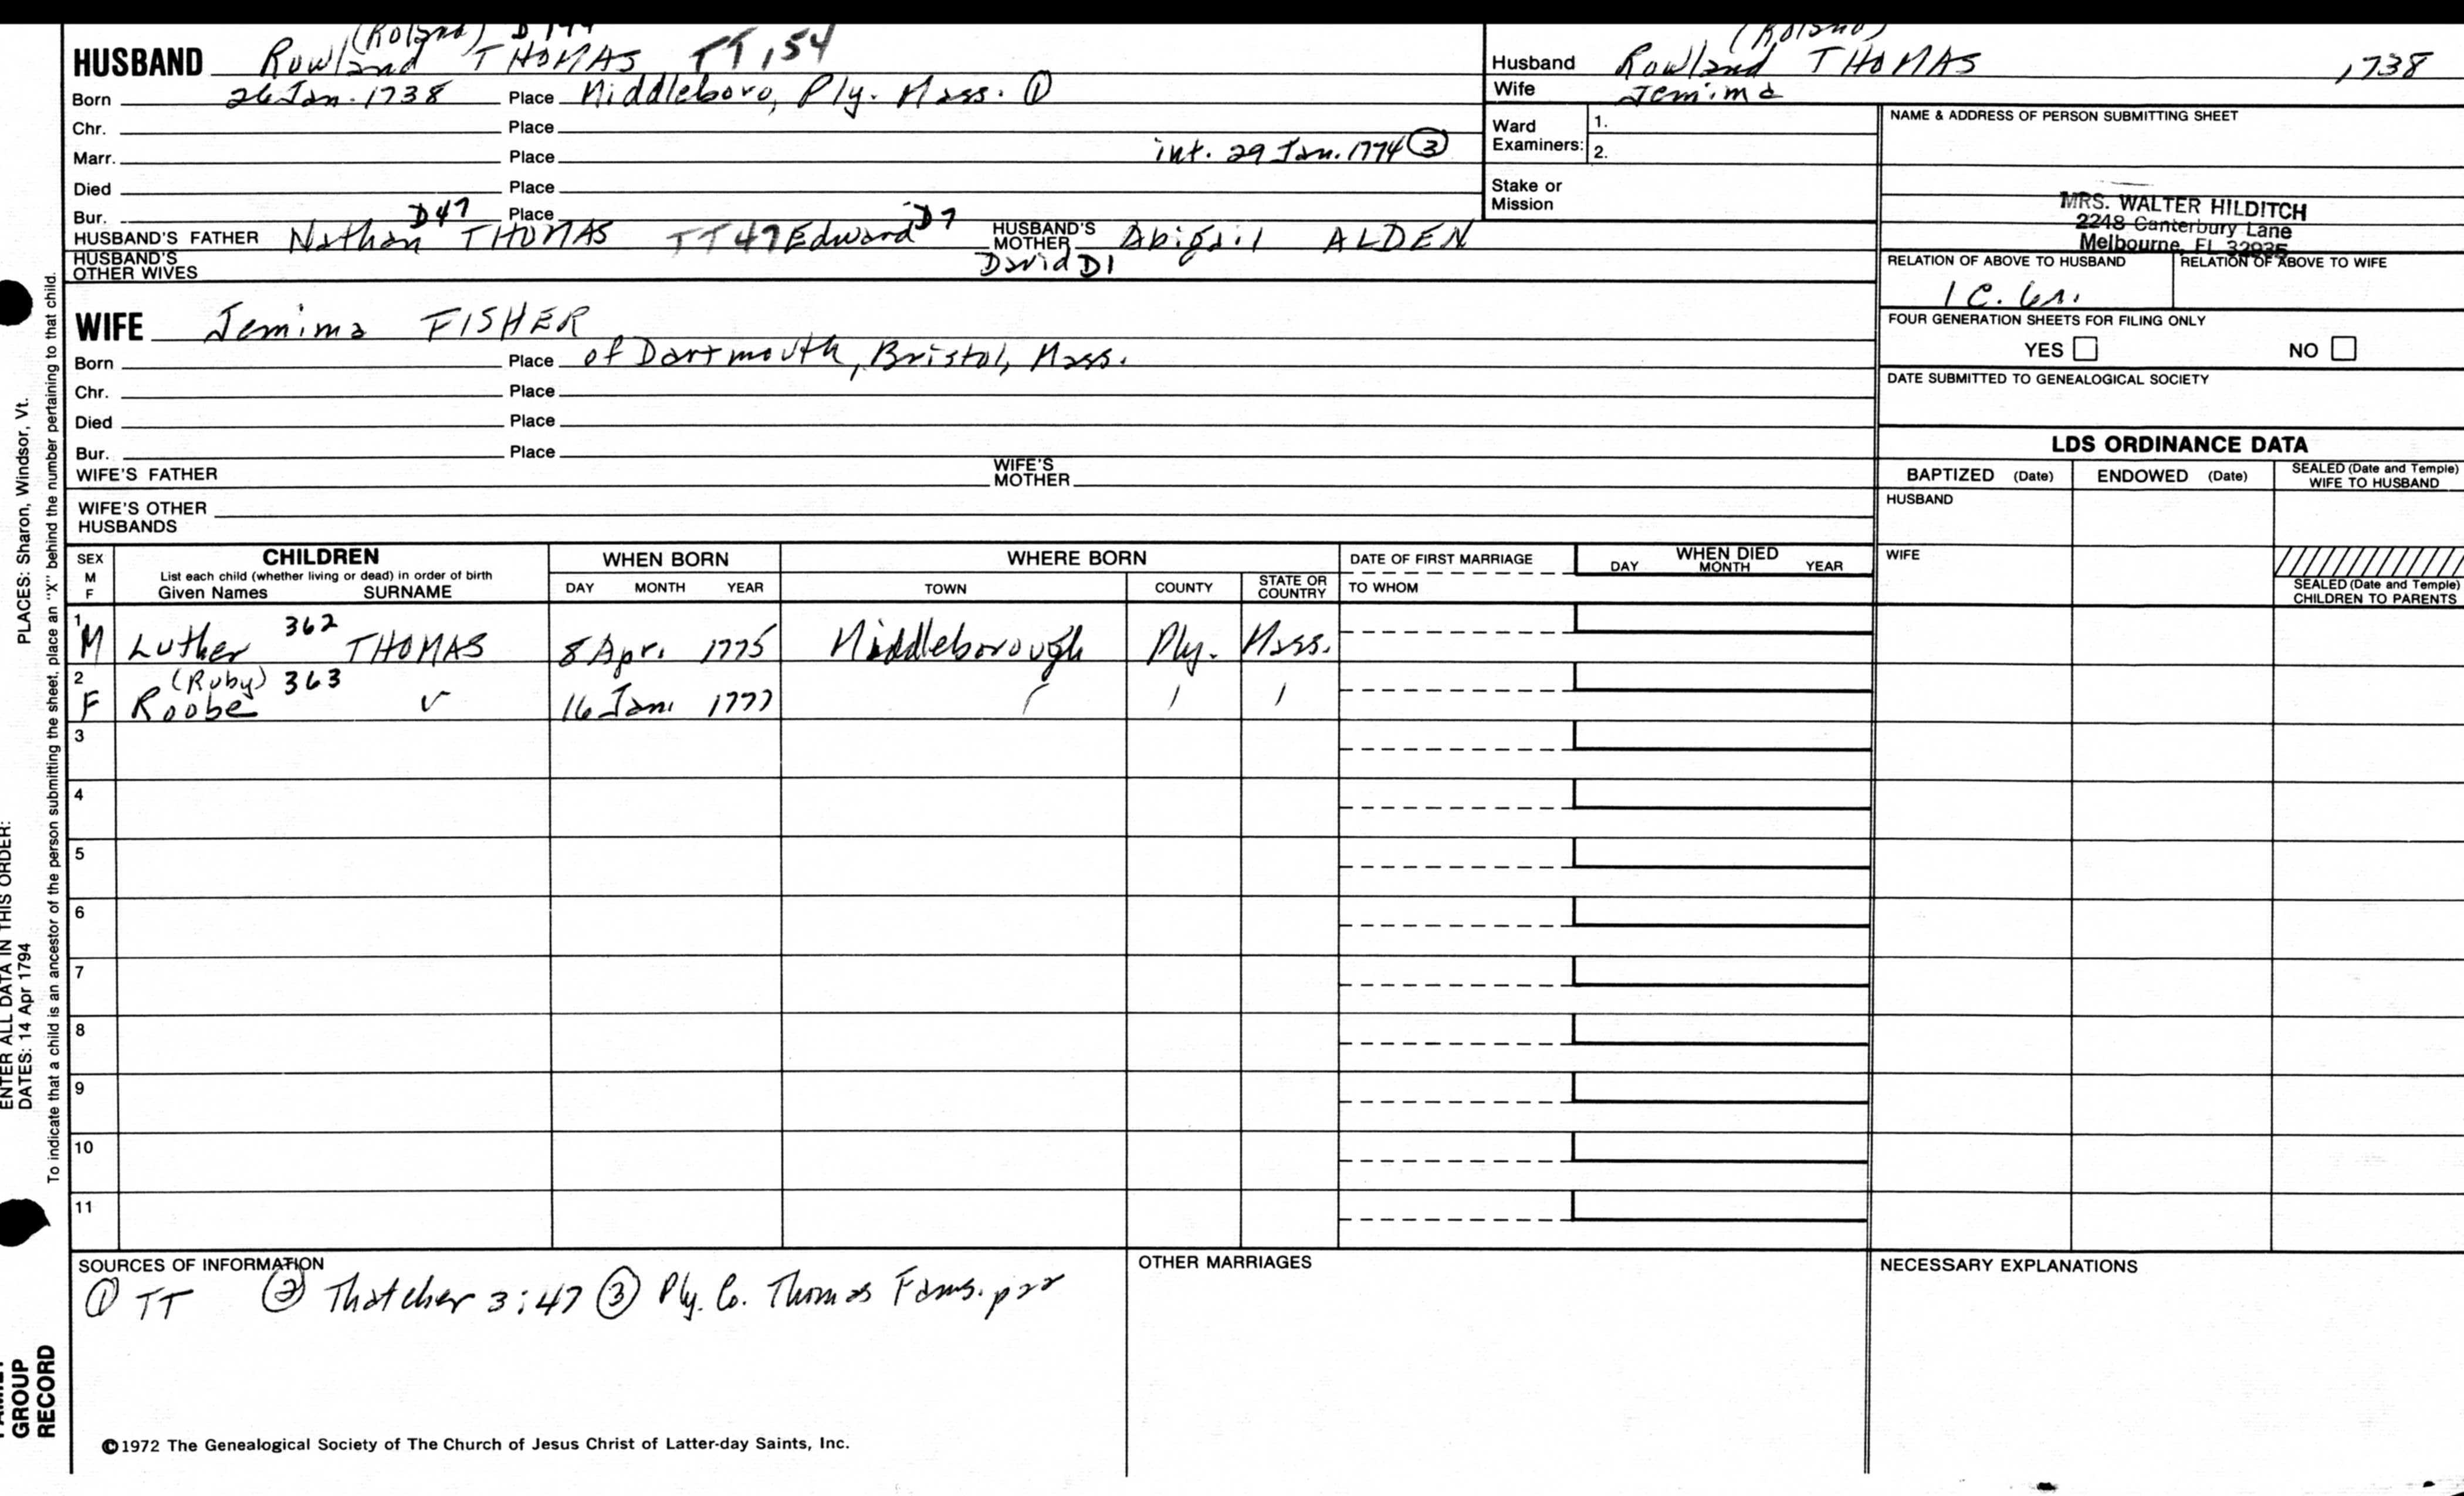 (Roland) D144
HUSBAND Rowland THOMAS TT 154
Born 26 Jan. 1738 Place Middleboro, Ply. Mass. ①
Chr. Place
Marr. Place int. 29 Jan. 1774 ③
Died Place
Bur. Place
HUSBAND'S FATHER Nathan D47 THOMAS TT47 Edward D7 HUSBAND'S MOTHER Abigail ALDEN
HUSBAND'S OTHER WIVES David D1
Husband (Roland) Rowland THOMAS 1738
Wife Jemima
Ward Examiners: 1.
2.
Stake or Mission
NAME & ADDRESS OF PERSON SUBMITTING SHEET
MRS. WALTER HILDITCH
2248 Canterbury Lane
Melbourne, FL 32935
RELATION OF ABOVE TO HUSBAND RELATION OF ABOVE TO WIFE
1 C.
FOUR GENERATION SHEETS FOR FILING ONLY
YES NO
DATE SUBMITTED TO GENEALOGICAL SOCIETY
WIFE Jemima FISHER
Born Place of Dartmouth, Bristol, Mass.
Chr. Place
Died Place
Bur. Place
WIFE'S FATHER WIFE'S MOTHER
WIFE'S OTHER HUSBANDS
LDS ORDINANCE DATA
BAPTIZED (Date) ENDOWED (Date) SEALED (Date and Temple) WIFE TO HUSBAND
HUSBAND
WIFE
SEALED (Date and Temple) CHILDREN TO PARENTS
SEX M F
CHILDREN
List each child (whether living or dead) in order of birth
Given Names SURNAME
WHEN BORN
DAY MONTH YEAR
WHERE BORN
TOWN COUNTY STATE OR COUNTRY
DATE OF FIRST MARRIAGE
TO WHOM
WHEN DIED
DAY MONTH YEAR
1 M Luther 362 THOMAS 8 Apr. 1775 Middleborough Ply. Mass.
2 F (Ruby) 363 Roobe 16 Jan. 1777
3
4
5
6
7
8
9
10
11
SOURCES OF INFORMATION
① TT ② Thatcher 3:47 ③ Ply. Co. Thomas Fams.
OTHER MARRIAGES
NECESSARY EXPLANATIONS
©1972 The Genealogical Society of The Church of Jesus Christ of Latter-day Saints, Inc.
ENTER ALL DATA IN THIS ORDER:
DATES: 14 Apr 1794 PLACES: Sharon, Windsor, Vt.
To indicate that a child is an ancestor of the person submitting the sheet, place an "X" behind the number pertaining to that child.
FAMILY
GROUP
RECORD